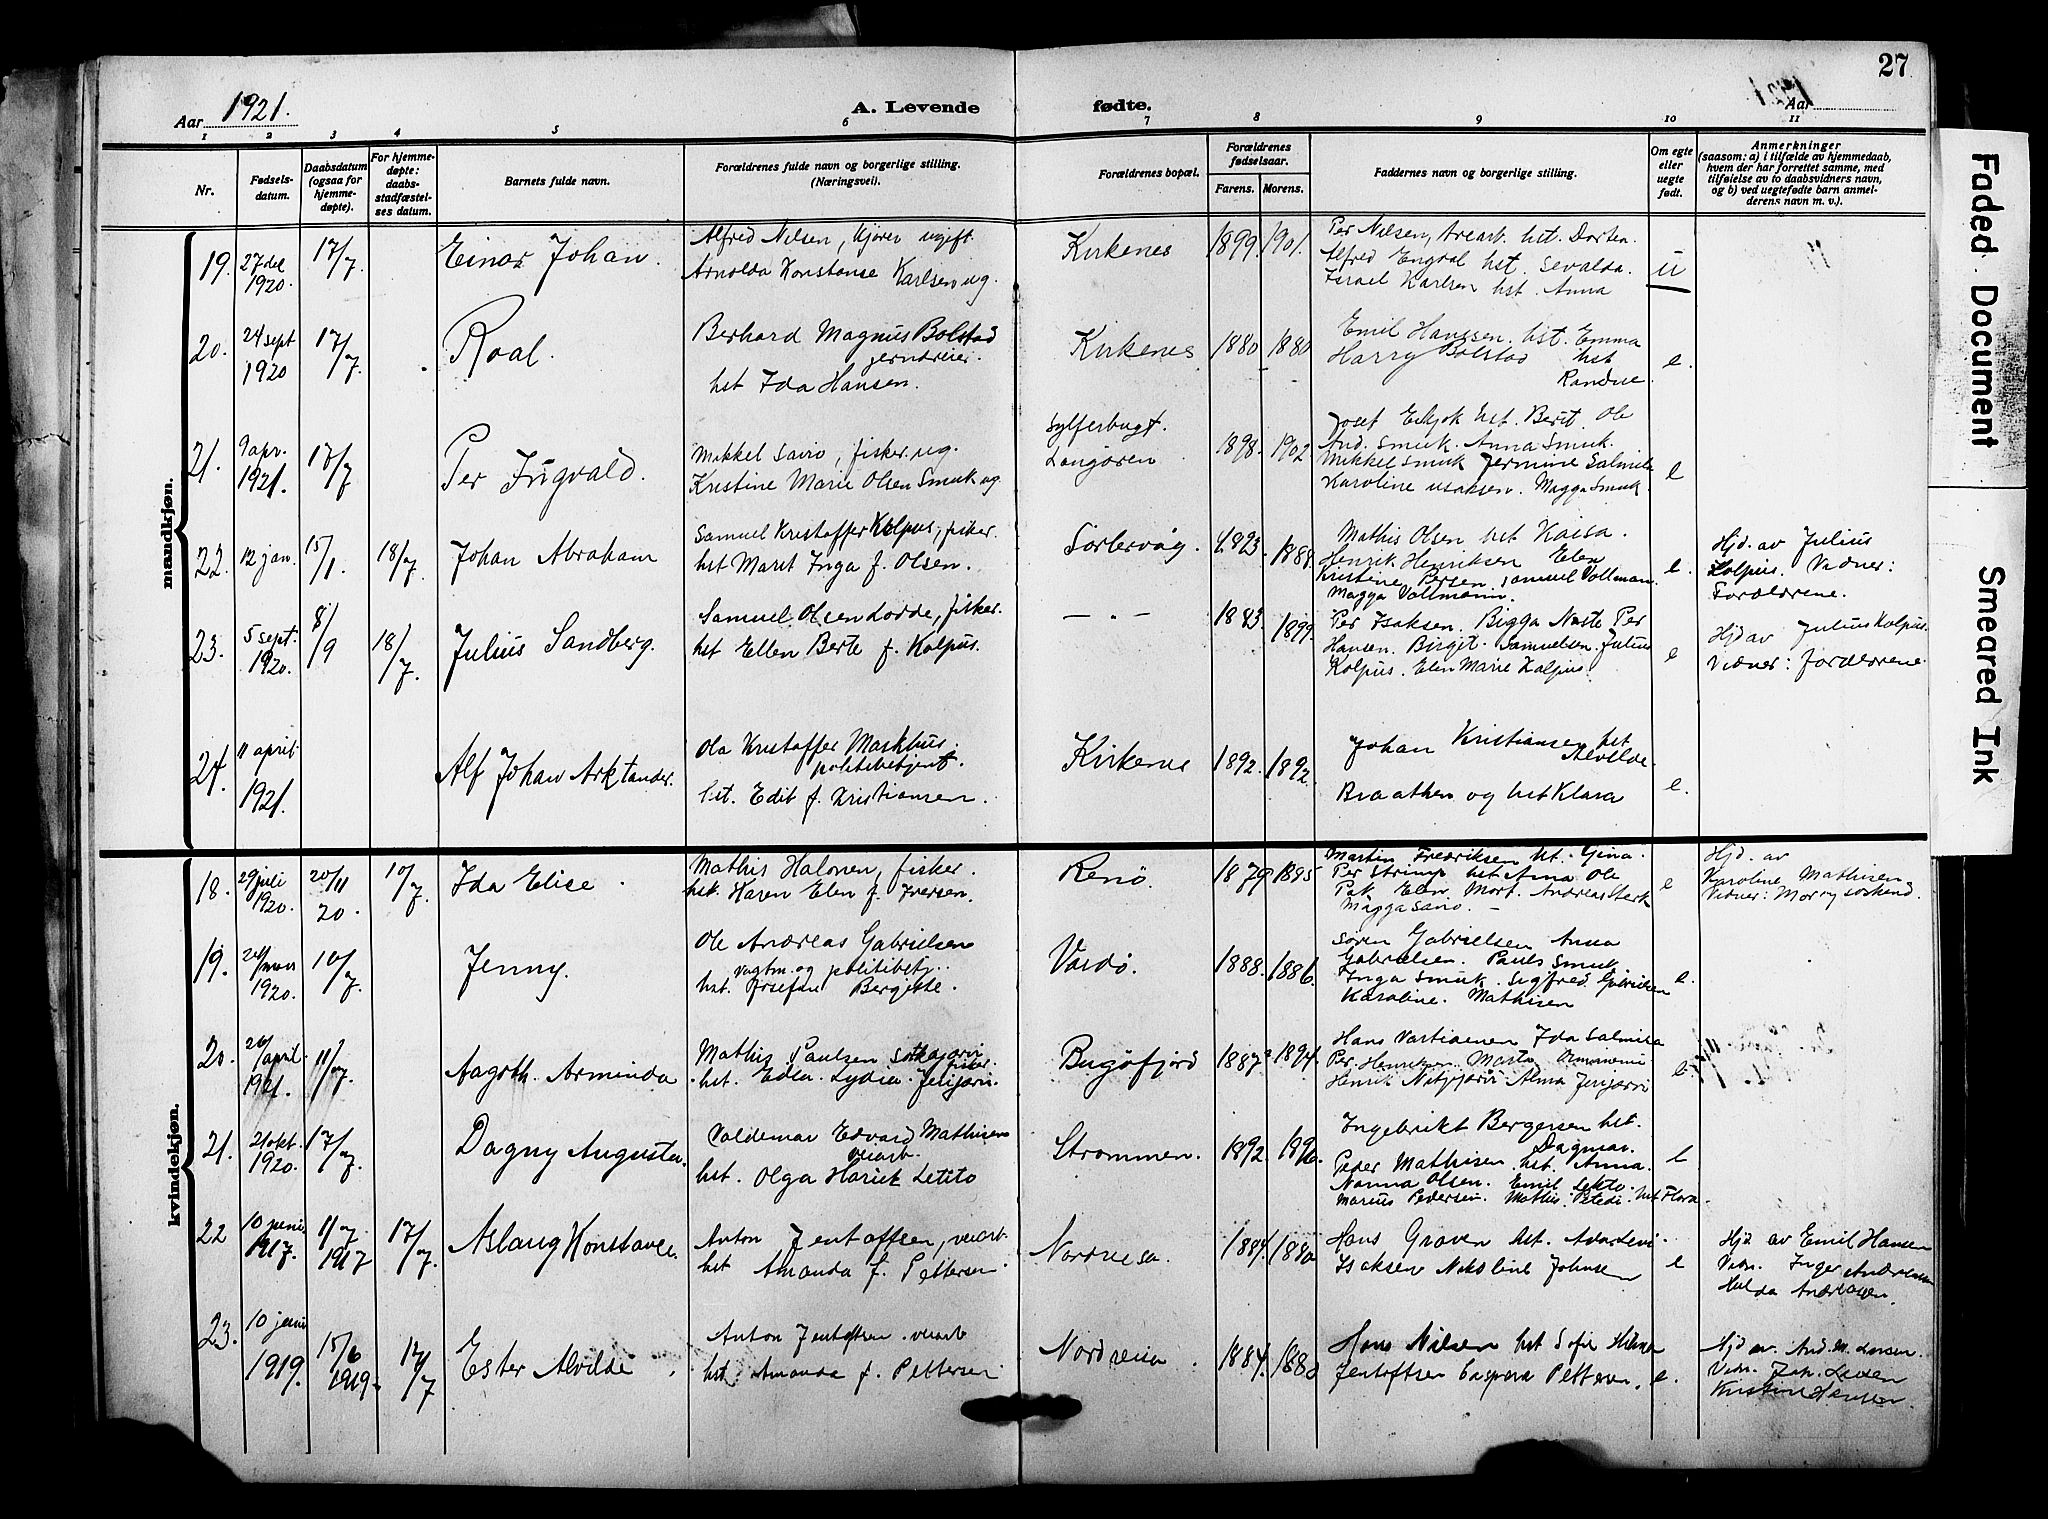 27
Aar 1921.
A. Levende fødte.
Aar
1 2 3 4 5 6 7 8 9 10 11
Nr.
Fødsels-
datum.
Daabsdatum
(ogsaa for
hjemme-
døpte).
For hjemme-
døpte:
daabs-
stadfæstel-
ses datum.
Barnets fulde navn.
Forældrenes fulde navn og borgerlige stilling.
(Næringsvei).
Forældrenes bopæl.
Forældrenes
fødselsaar.
Farens. Morens.
Faddernes navn og borgerlige stilling.
Om egte
eller
uegte
født.
Anmerkninger
(saasom: a) i tilfælde av hjemmedaab,
hvem der har forrettet samme, med
tilføielse av to daabsvidners navn,
og b) ved uegtefødte barn anmel-
derens navn m. v.).
mandkjøn.
19. 27 des 1920. 17/7 Einar Johan.
Alfred Nilsen, kjører ugift
Arnolda Konstanse Karlsen ug.
Kirkenes 1899. 1901.
Per Nilsen, hst. Dorten.
Alfred Engdal hst. Sevalda.
Israel Karlsen hst. Anna
u
20. 24 sept 1920 17/7. Roal.
Berhard Magnus Bolstad
jerndreier.
hst Ida Hansen.
Kirkenes 1880 1880
Emil Hanssen. hst. Emma
Harry Bolstad hst
Randue.
e.
21. 9 apr. 1921. 17/7 Per Ingvald.
Mikkel Sairo, fisker. ug.
Kristine Marie Olsen Smuk ug
Sylferbugt.
Langøren. 1898. 1902
Josef hst. Berit. Ole
And. Smuk. Anna Smuk.
Mikkel Smuk Jermine Salmila
Karoline Isaksen. Magga Smuk.
e
22. 12 jan. 15/1. 18/7. Johan Abraham
Samuel Kristoffer Kolpus, fisker.
hst Marit Inga f. Olsen.
1893. 1888.
Mathis Olsen hst Kaisa.
Henrik Henriksen Elen
Kristine Persen Samuel Vollman.
Magga Vollmann.
e.
Hjd. av Julius
Kolpus. Vidner:
Forældrene.
23. 5 sept. 1920. 8/9 18/7. Julius Sandberg.
Samuel Olsen Dorde, fisker.
hst Ellen Berte f. Kolpus.
— " — 1883. 1899.
Per Isaksen. Bigga Neste Per
Hansen. Birgit. Samuelsen. Julius
Kolpus. Elen Marie Kolpus.
e
Hjd av Julius Kolpus.
Vidner: forældrene.
24. 11 april 1921. Alf Johan Arktander.
Ola Kristoffer Markhus,
politibetjent.
hst. Edit f. Kristiansen.
Kirkenes 1892. 1892.
Johan Kristiansen hst
Alvilde.
Braathen og hst Klara
e.
kvindekjøn.
18. 29 juli 1920. 20/11 20. 10/7. Ida Elise.
Mathis Halonen, fisker.
hst. Karen Elen f. Iversen.
Renø. 1879 1885
Martin Fredriksen hst. Gina.
Per Strimp hst Anna Ole
Pak. Elen Mort. Andreas Sterk
Magga Sairo. —
e
Hjd. av
Karoline Mathisen
Vidner: Mor og søskend.
19. 1920. 10/7. Jenny.
Ole Andreas Gabrielsen
vagtm. og politibetj.
hst. Josefine Bergette.
Vardø. 1888. 1886.
Søren Gabrielsen Anna
Gabrielsen. Pauls Smuk
Inga Smuk. Sigfred Gabrielsen
Karoline. Mathisen
e.
20. 20/april 1921. 11/7. Aagoth. Arminda
Mathis Paulsen
fisker.
hst. Edea. Lydia. Jerijarvi.
Bugøfjord 1887 1894.
Hans Vartiainen Ida Salmila
Per Henriksen Marta
Henrik Alma Jerijarvi
e.
21. 21 okt. 1920. 17/7. Dagny Augusta.
Valdemar Edvard Mathisen
veiarb.
hst. Olga Letito
Strømmen. 1892. 1896.
Ingebrikt Bergersen hst.
Dagmar.
Peder Mathisen. hst. Anna.
Nanna Olsen. Emil Lekto.
Marius Pedersen. Mathis. hst Flora.
e
22 10 juni 1917. 11/7. 1917 17/7. Aslaug Konstanse.
Anton Jentoftsen, veiarb.
hst Amanda f. Pettersen.
Nordreisa. 1884. 1880
Hans Graven hst. Levi.
Isaksen Nikoline Johnsen
e
Hjd av Emil Hansen
Vidn. Inger Andreassen
Hulda Andreasen.
23. 10 juni 1919. 15/6 1919. 17/7 Ester Alvilde.
Anton Jentoftsen. veiarb
hst Amanda f. Pettersen
Nordreisa. 1884. 1880
Hans Nilsen hst Sofie Hilmar
Jentoftsen Caspara Pettersen.
e.
Hjd av. And. M. Larsen.
Vidn. Joh. Larsen
Kristine Hansen.
Faded Document
Smeared Ink